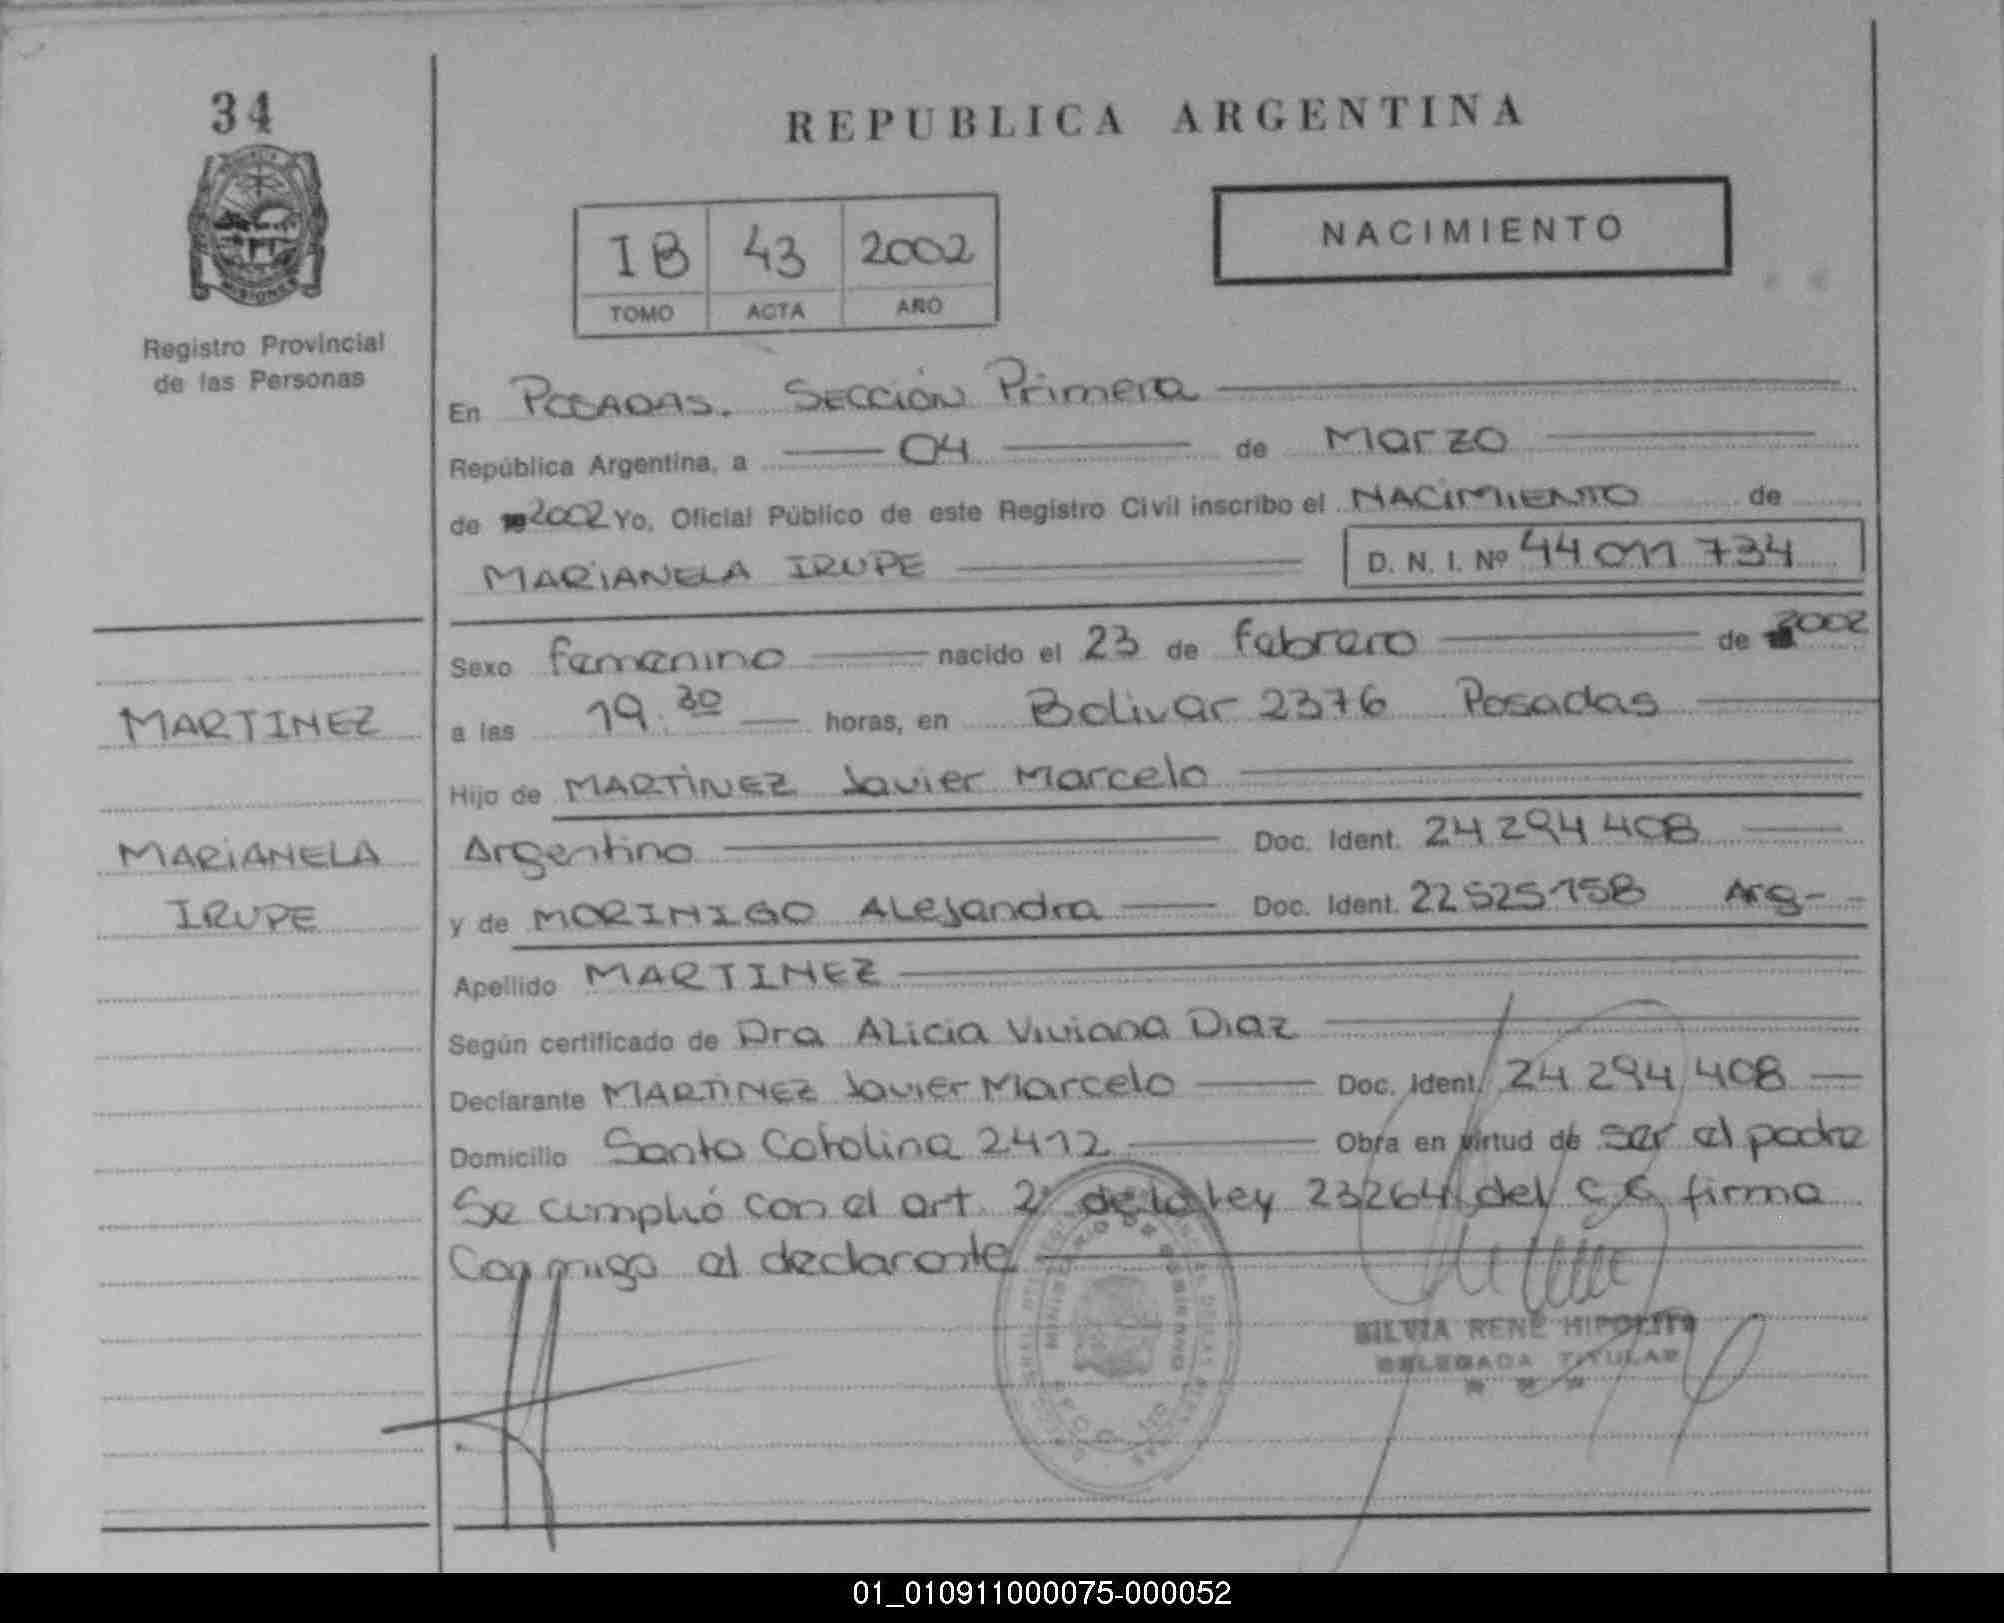 34
MISIONES
Registro Provincial
de las Personas
MARTINEZ
MARIANELA
IRUPE
REPUBLICA ARGENTINA
NACIMIENTO
IB 43 2002
TOMO ACTA AÑO
En POSADAS. SECCIÓN Primera
República Argentina, a 04 de Marzo
de 2002 Yo, Oficial Público de este Registro Civil inscribo el NACIMIENTO de
MARIANELA IRUPE D. N. I. Nº 44 011 734
Sexo femenino nacido el 23 de febrero de 2002
a las 19.30 horas, en Bolivar 2376 Posadas
Hijo de MARTINEZ Javier Marcelo
Argentino Doc. Ident. 24 294 408
y de MORINIGO Alejandra Doc. Ident. 22 525 158 Arg-
Apellido MARTINEZ
Según certificado de Dra Alicia Viviana Diaz
Declarante MARTINEZ Javier Marcelo Doc. Ident. 24 294 408
Domicilio Santa Catalina 2412 Obra en virtud de ser el padre
Se cumplió con el art. 2 de la Ley 23264 del C C firma
Conmigo el declarante
SILVIA RENE HIPOLITO
DELEGADA TITULAR
01_010911000075-000052